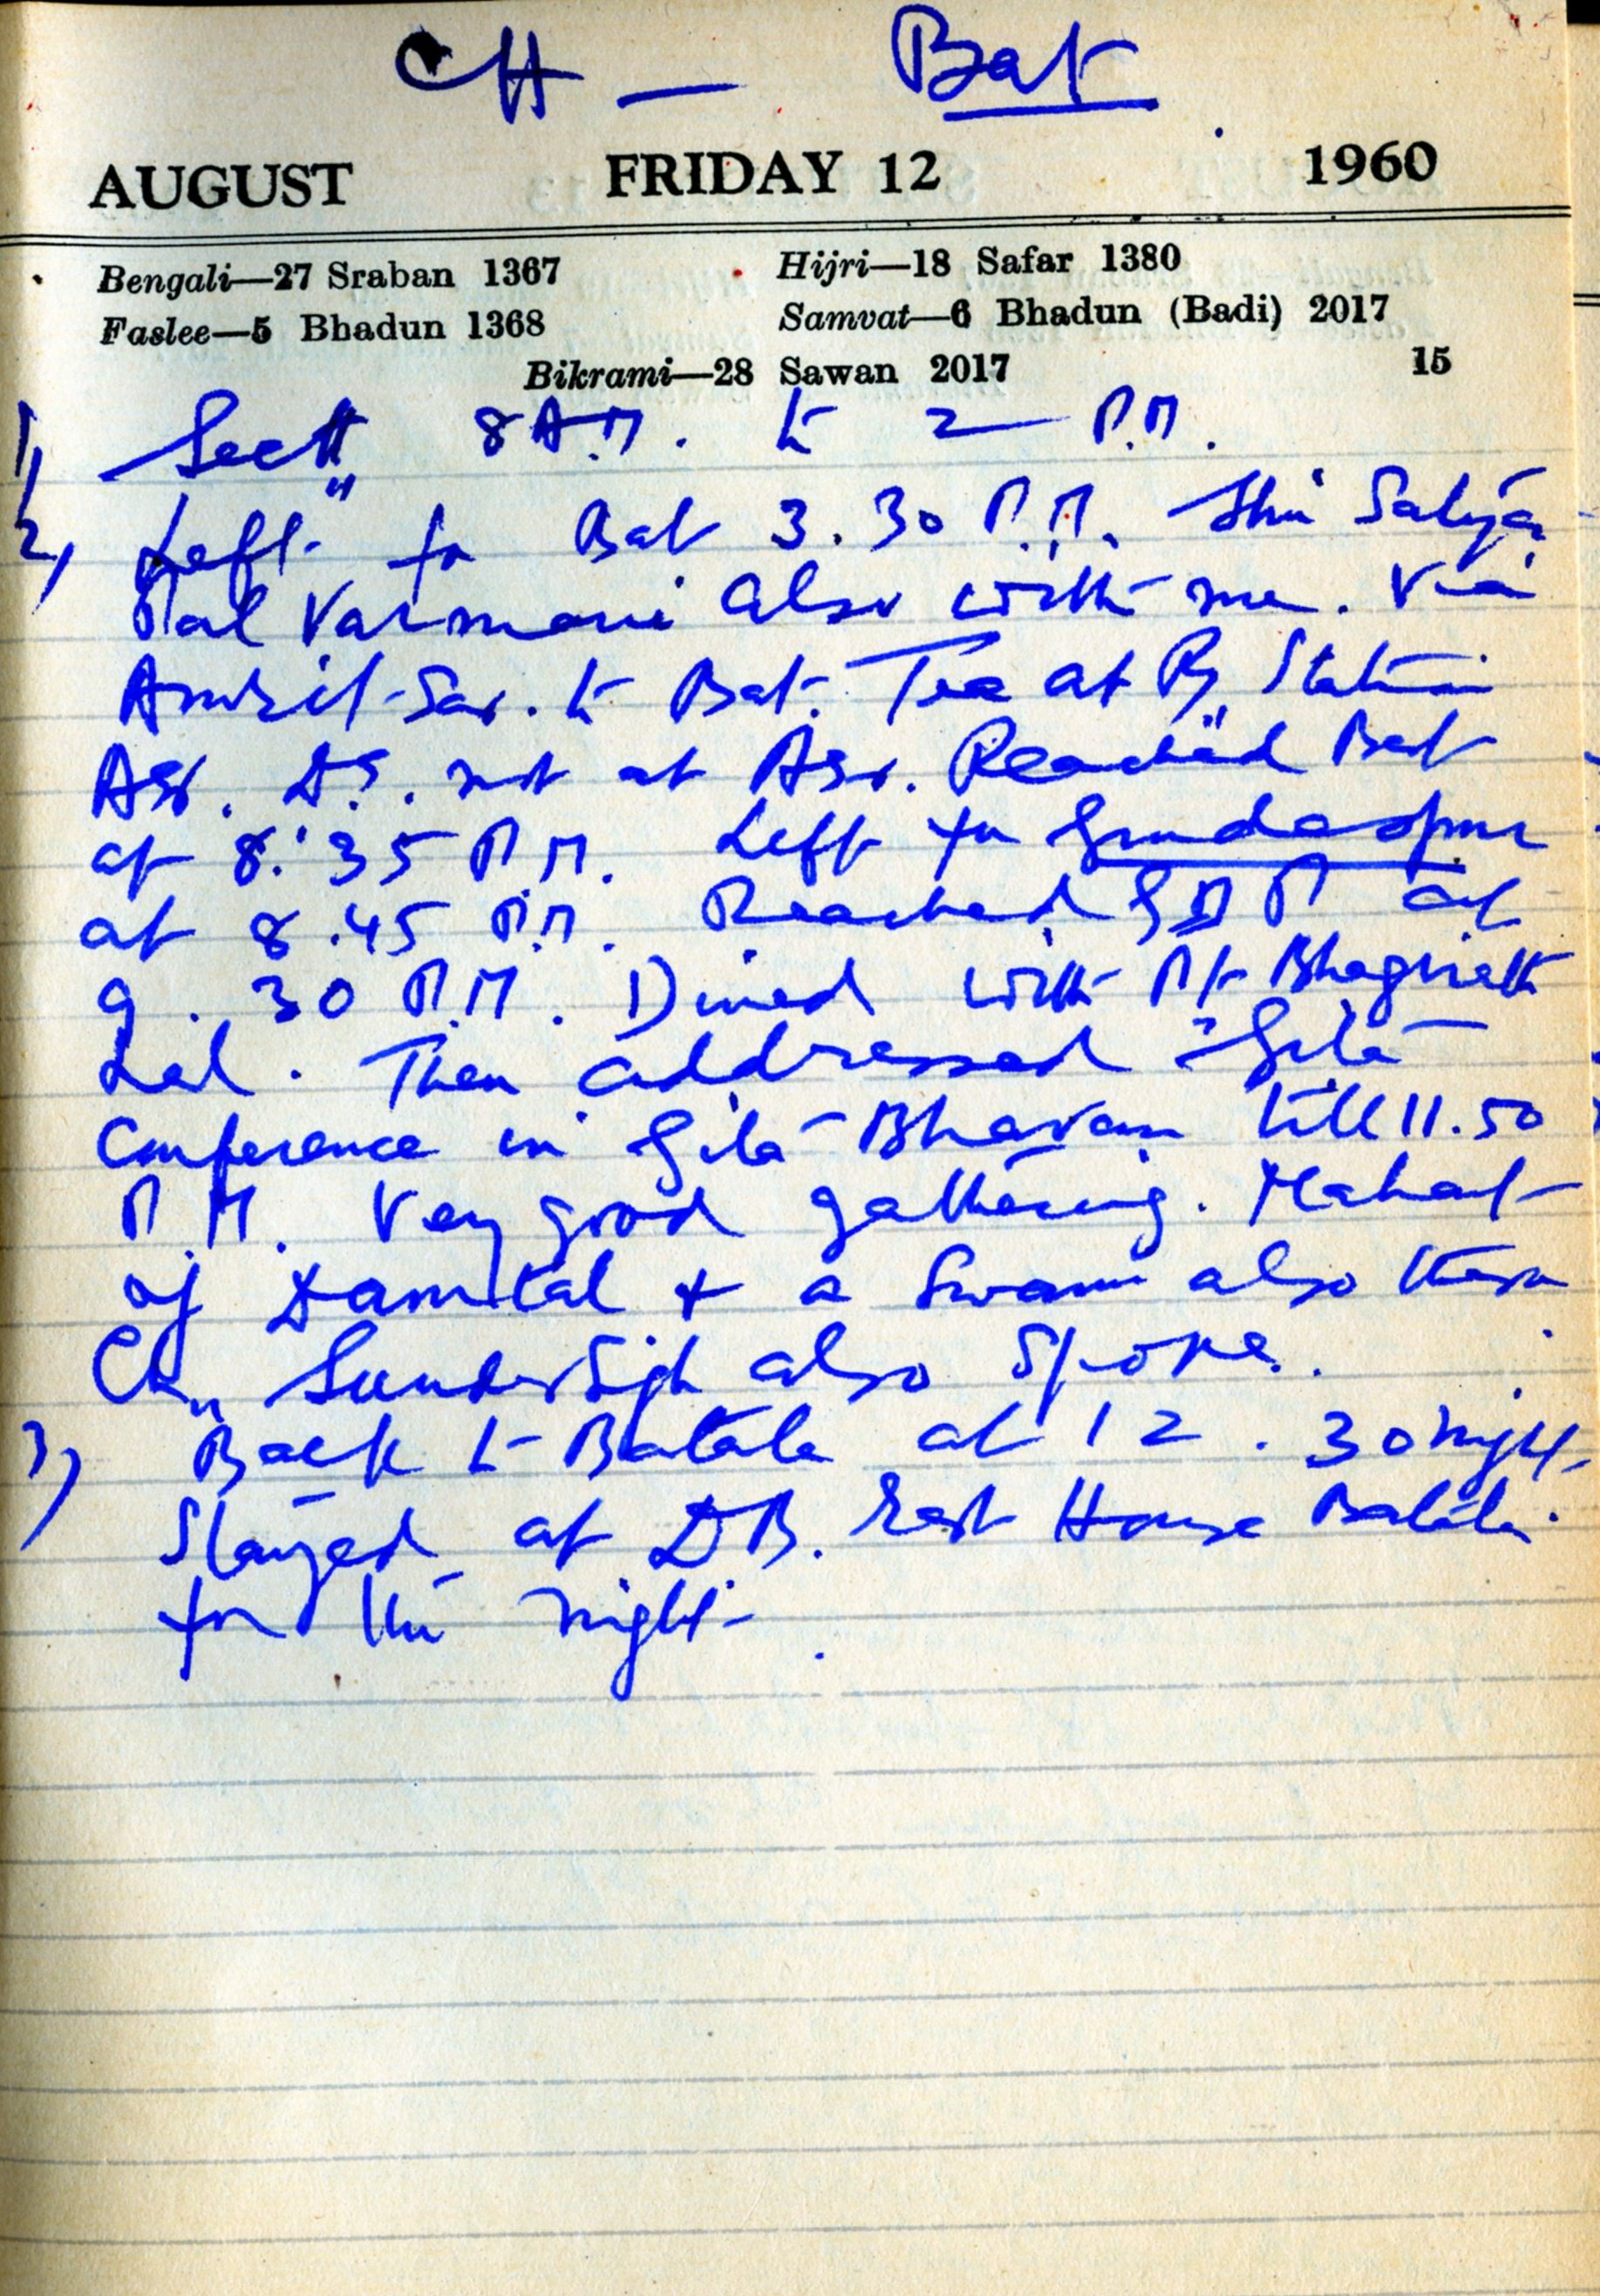 CH — Bat
AUGUST FRIDAY 12 1960
Bengali—27 Sraban 1367 Hijri—18 Safar 1380
Faslee—5 Bhadun 1368 Samvat—6 Bhadun (Badi) 2017
Bikrami—28 Sawan 2017 15
1) Sectt 8 A.M. to 2 P.M.
2) Left for Bat 3.30 P.M. Shri Satya
Pal Varmani also with me. Via
Amrit-Sar. to Bat. Tea at Ry Station
Asr. D.S. met at Asr. Reached Bat
at 8.35 P.M. Left for Gurdaspur
at 8.45 P.M. Reached GDP at
9.30 P.M. Dined with Pt Bhagirath
Lal. Then addressed Gita
Conference in Gita Bhavan till 11.50
P.M. Very good gathering. Mahant
of Damtal + a Swami also there
Ch. Sunder Singh also spoke.
3) Back to Batala at 12.30 night.
Stayed at DB. Rest House Batala
for the night.